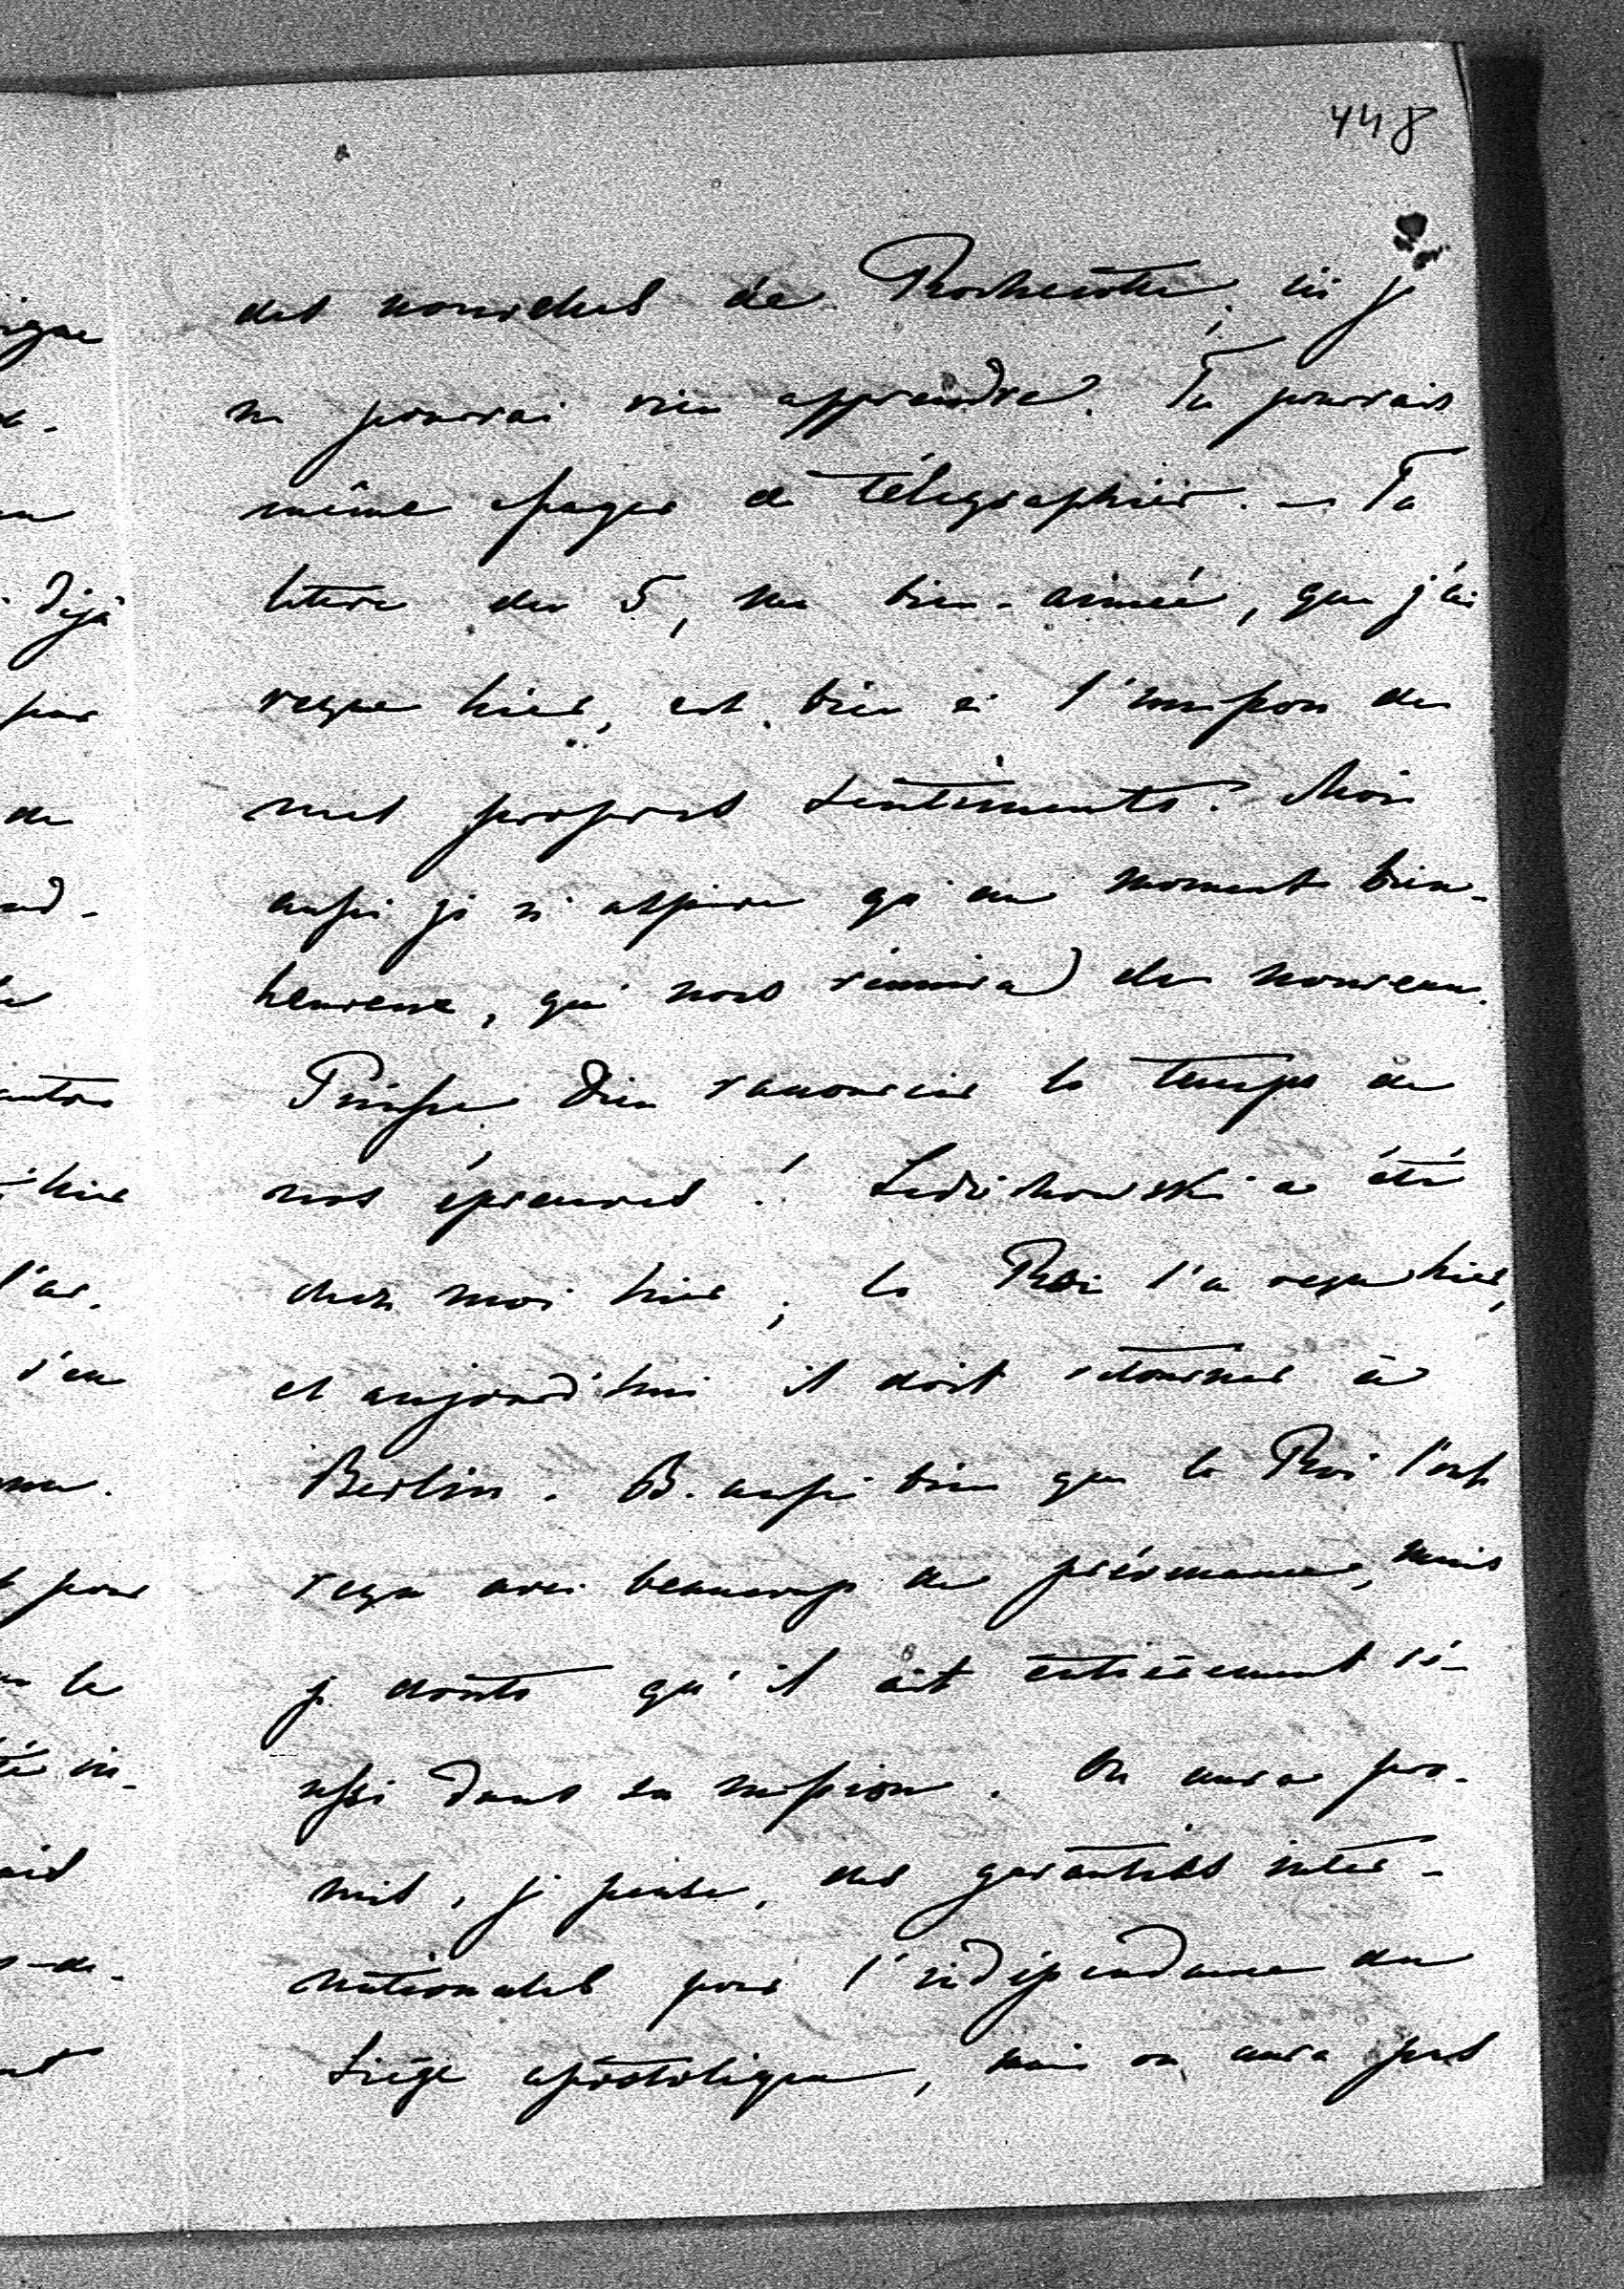 448
des nouvelles de Rochecotte; ici je
ne pourrai rien apprendre. Tu pourrais
même essayer de télégraphier. — Ta
lettre du 5, ma bien-aimée, que j'ai
reçue hier, est bien à l'unisson de
mes propres sentiments. Moi
aussi je n'aspire qu'au moment bien-
heureux, qui nous réunira de nouveau.
Puisse Dieu raccourcir le temps de
nos épreuves! Ledóchowski a été
chez moi hier; le Roi l'a reçu hier,
et aujourd'hui il doit retourner à
Berlin. B. aussi bien que le Roi l'ont
reçu avec beaucoup de prévenance, mais
je doute qu'il ait entièrement ré-
ussi dans sa mission. On aura pro-
mis, je pense, des garanties inter-
nationales pour l'indépendance du
Siège apostolique, mais on aura pas
igne
déjà
par
de
nd-
autre
hier
l'ac-
s'en
pour
le
té in-